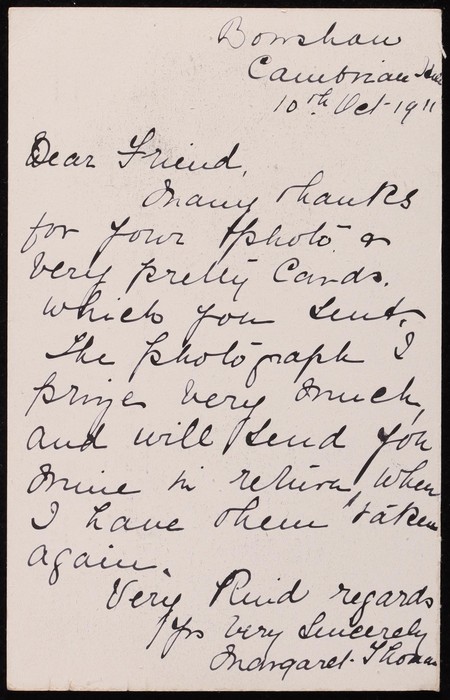 Bowshaw
Cambrian
10th Oct-1911
Dear Friend,
Many thanks
for your photo &
very pretty Cards.
which you sent.
The photograph I
prize very much,
and will send you
mine in return, when
I have them taken
again.
Very Kind regards
Yrs very Sincerely
Margaret Thomas